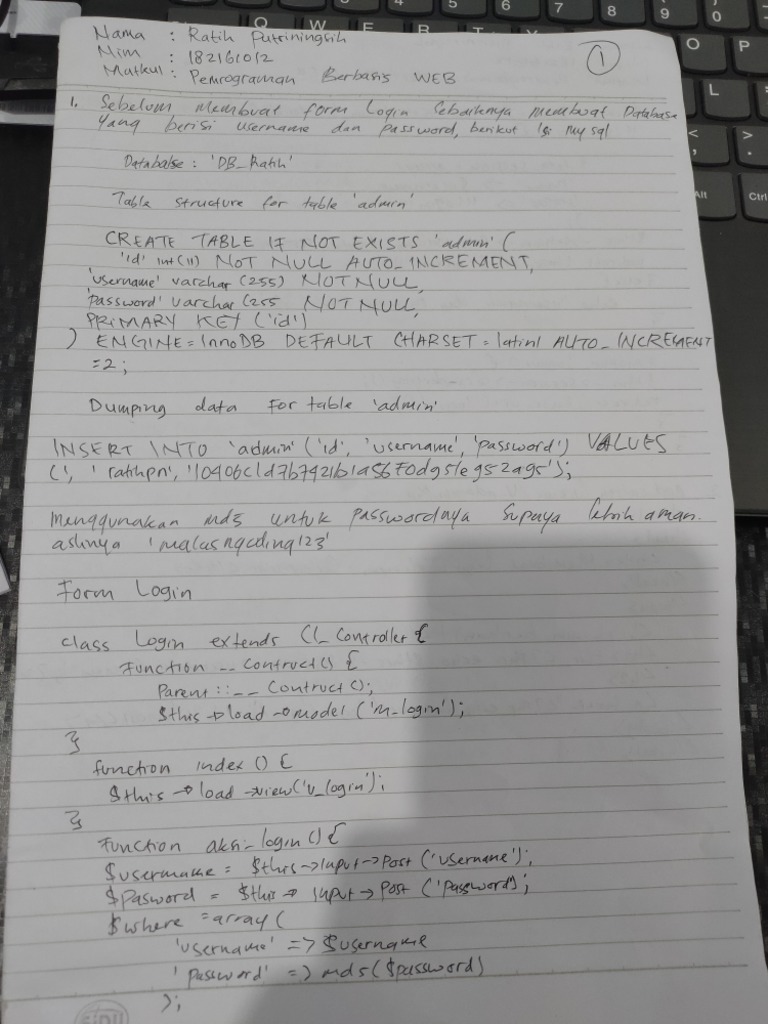 Nama : Ratih Putriningsih
Nim : 182161012
Matkul : Pemrograman Berbasis WEB
1
1. Sebelum membuat form Login sebaiknya membuat Database
yang berisi username dan password, berikut isi my sql
Database : 'DB_Ratih'
Table structure for table 'admin'
CREATE TABLE IF NOT EXISTS 'admin' (
'id' int(11) NOT NULL AUTO_INCREMENT,
'username' varchar (255) NOT NULL,
'password' varchar (255 NOT NULL,
PRIMARY KEY ('id')
) ENGINE = InnoDB DEFAULT CHARSET = latin1 AUTO_INCREMENT
=2 ;
Dumping data for table 'admin'
INSERT INTO 'admin' ('id', 'username', 'password') VALUES
(', 'ratihpn',
Menggunakan md5 untuk passwordnya supaya lebih aman.
aslinya 'malasngoding123'
Form Login
class Login extends CI_Controller {
Function __Contruct() {
Parent :: __ Contruct ();
$this → load → model ('m_login');
}
function index () {
$this → load → view('v_login');
}
Function aksi_login () {
$username = $this → input → post ('username');
$pasword = $this → input → post ('password);
$where = array (
'username' => $username
'password' => md5 ($password)
);
Q W E R O P L
8 9 0
Alt Ctrl
SIDU